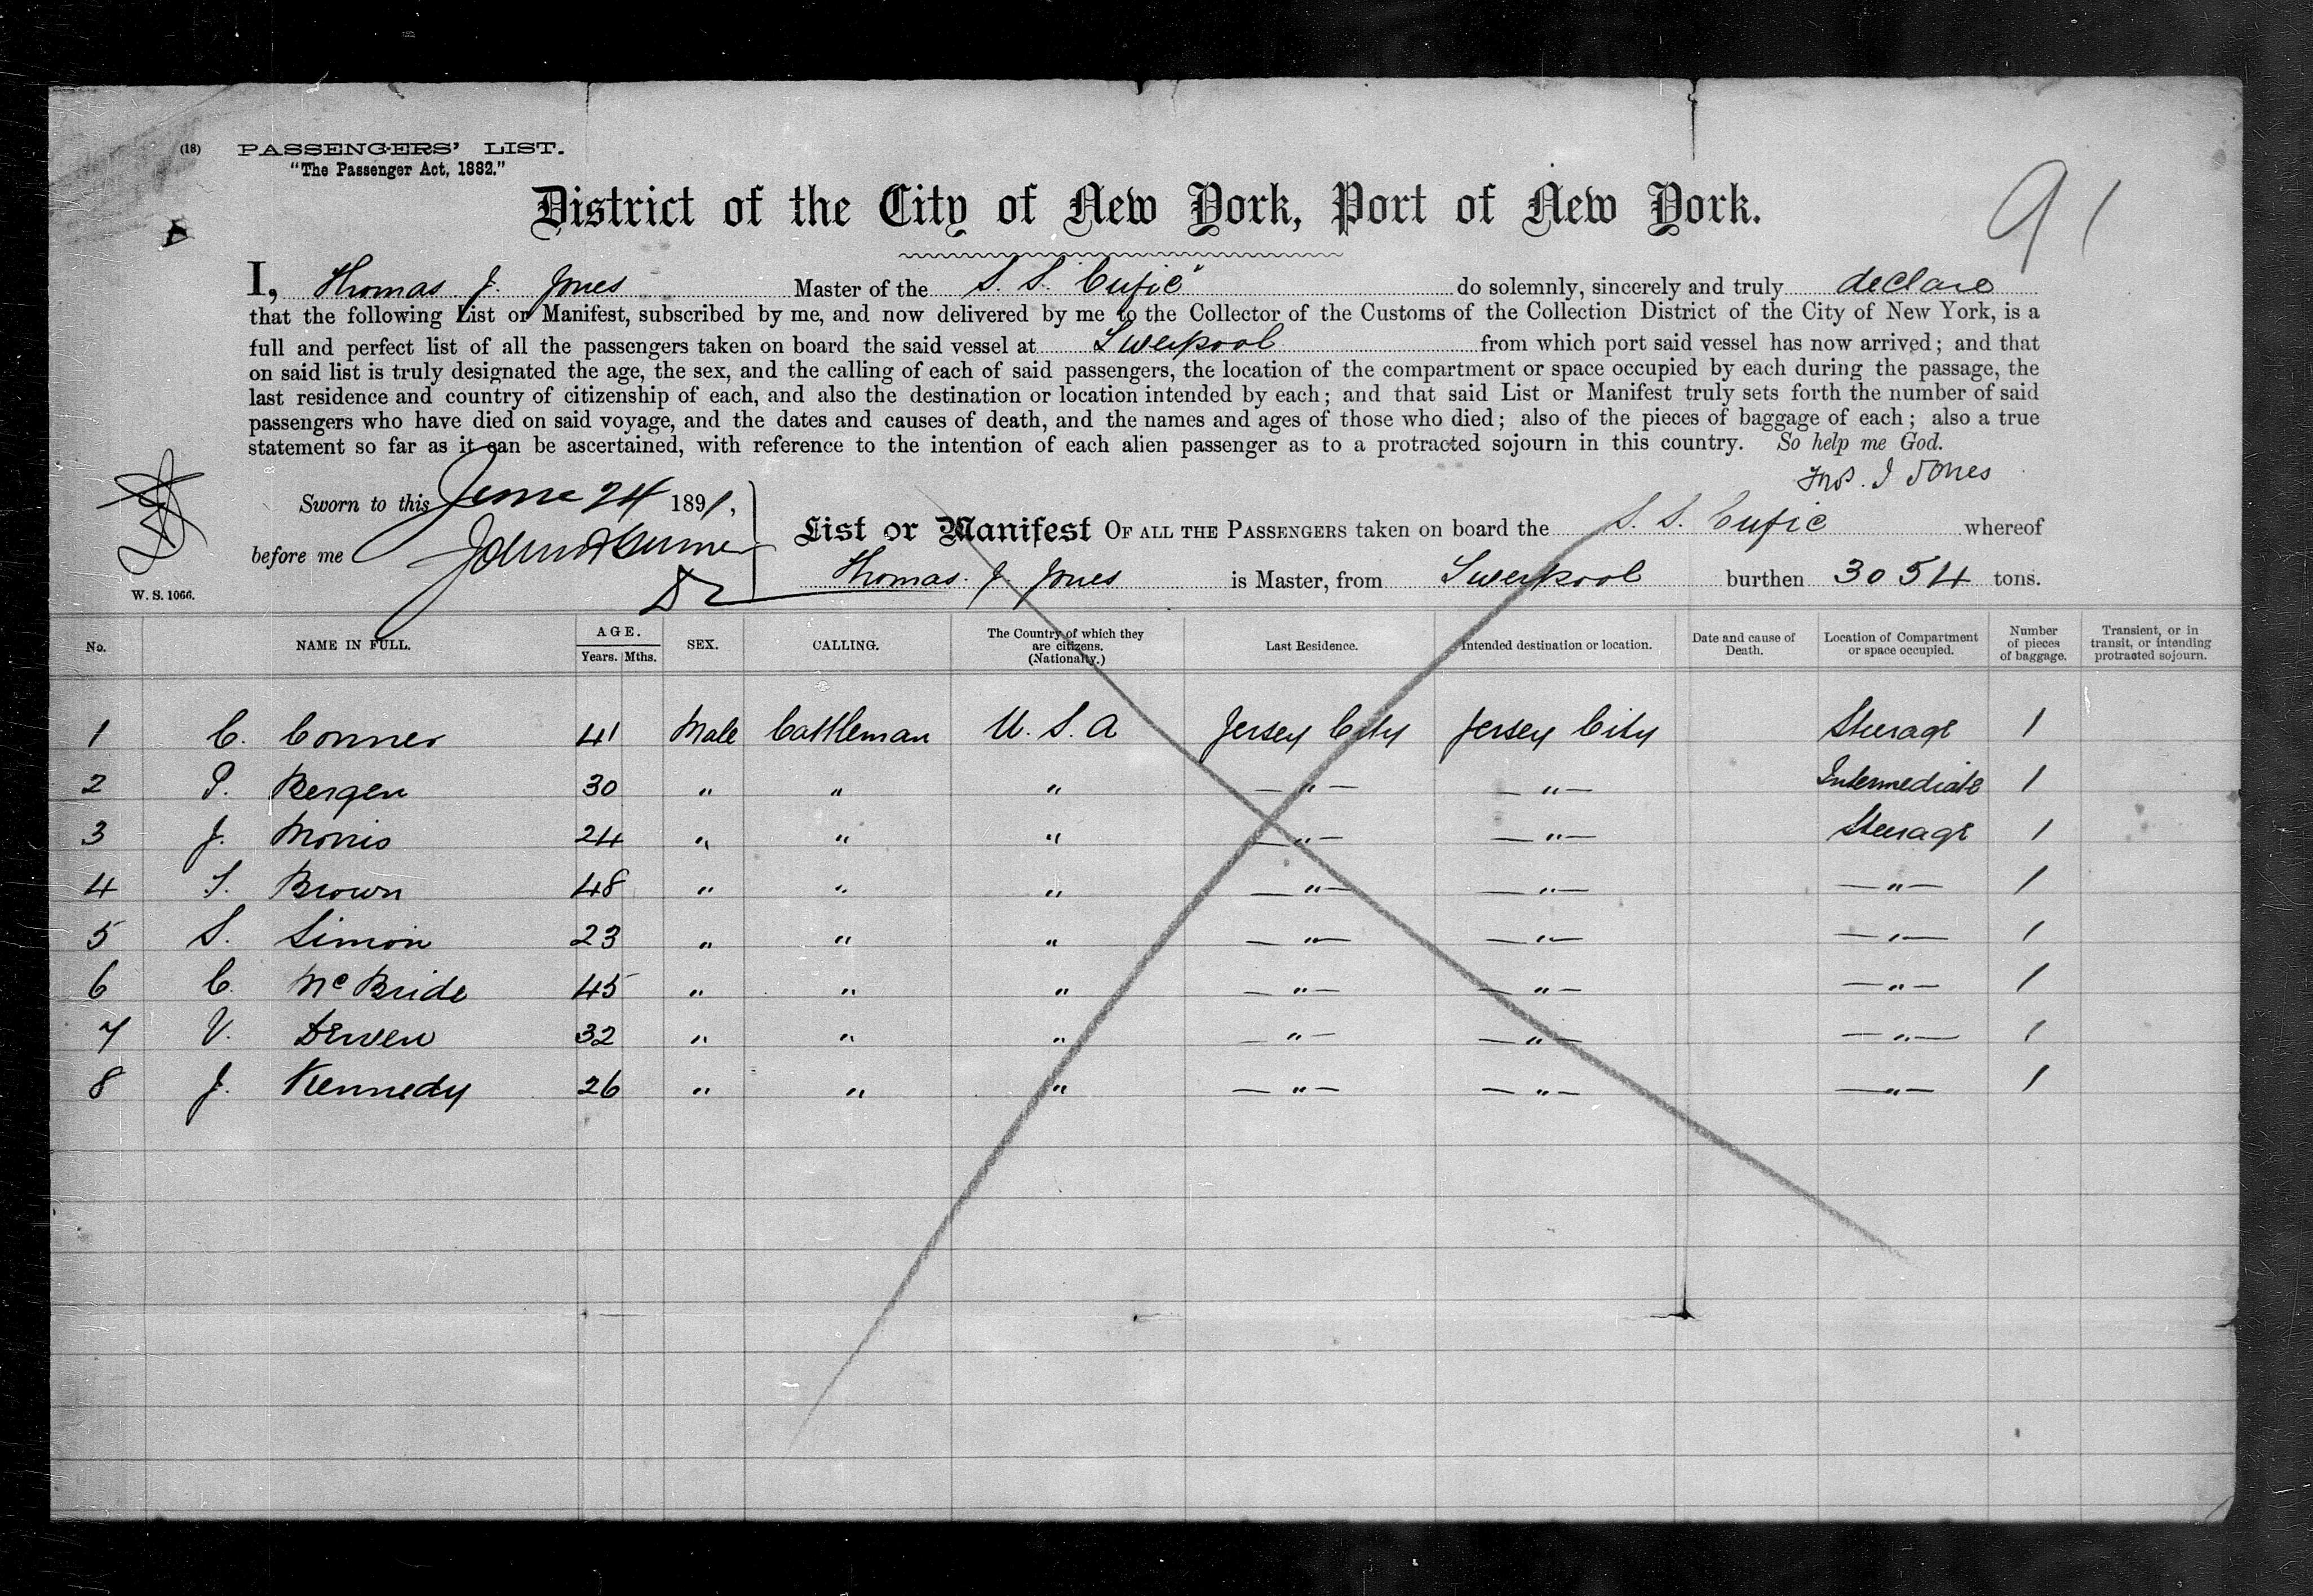 (18) PASSENGERS' LIST.
"The Passenger Act, 1882."
91
District of the City of New York, Port of New York.
I, Thomas J. Jones Master of the S. S. "Cufic" do solemnly, sincerely and truly declare
that the following List or Manifest, subscribed by me, and now delivered by me to the Collector of the Customs of the Collection District of the City of New York, is a
full and perfect list of all the passengers taken on board the said vessel at Liverpool from which port said vessel has now arrived; and that
on said list is truly designated the age, the sex, and the calling of each of said passengers, the location of the compartment or space occupied by each during the passage, the
last residence and country of citizenship of each, and also the destination or location intended by each; and that said List or Manifest truly sets forth the number of said
passengers who have died on said voyage, and the dates and causes of death, and the names and ages of those who died; also of the pieces of baggage of each; also a true
statement so far as it can be ascertained, with reference to the intention of each alien passenger as to a protracted sojourn in this country. So help me God.
Thos. J Jones
Sworn to this June 24 1891,
before me
List or Manifest OF ALL THE PASSENGERS taken on board the S. S. Cufic whereof
Thomas. J. Jones is Master, from Liverpool burthen 3054 tons.
W. S. 1066.
No. NAME IN FULL. AGE. Years. Mths. SEX. CALLING. The Country of which they are citizens. (Nationality.) Last Residence. Intended destination or location. Date and cause of Death. Location of Compartment or space occupied. Number of pieces of baggage. Transient, or in transit, or intending protracted sojourn.
1 C. Conner 41 Male Cattleman U. S. A Jersey City Jersey City Steerage 1
2 P. Bergen 30 " " " — " — — " — Intermediate 1
3 J. Morris 24 " " " — " — — " — Steerage 1
4 T. Brown 48 " " " — " — — " — — " — 1
5 S. Simon 23 " " " — " — — " — — " — 1
6 C. McBride 45 " " " — " — — " — — " — 1
7 V. 32 " " " — " — — " — — " — 1
8 J. Kennedy 26 " " " — " — — " — — " — 1